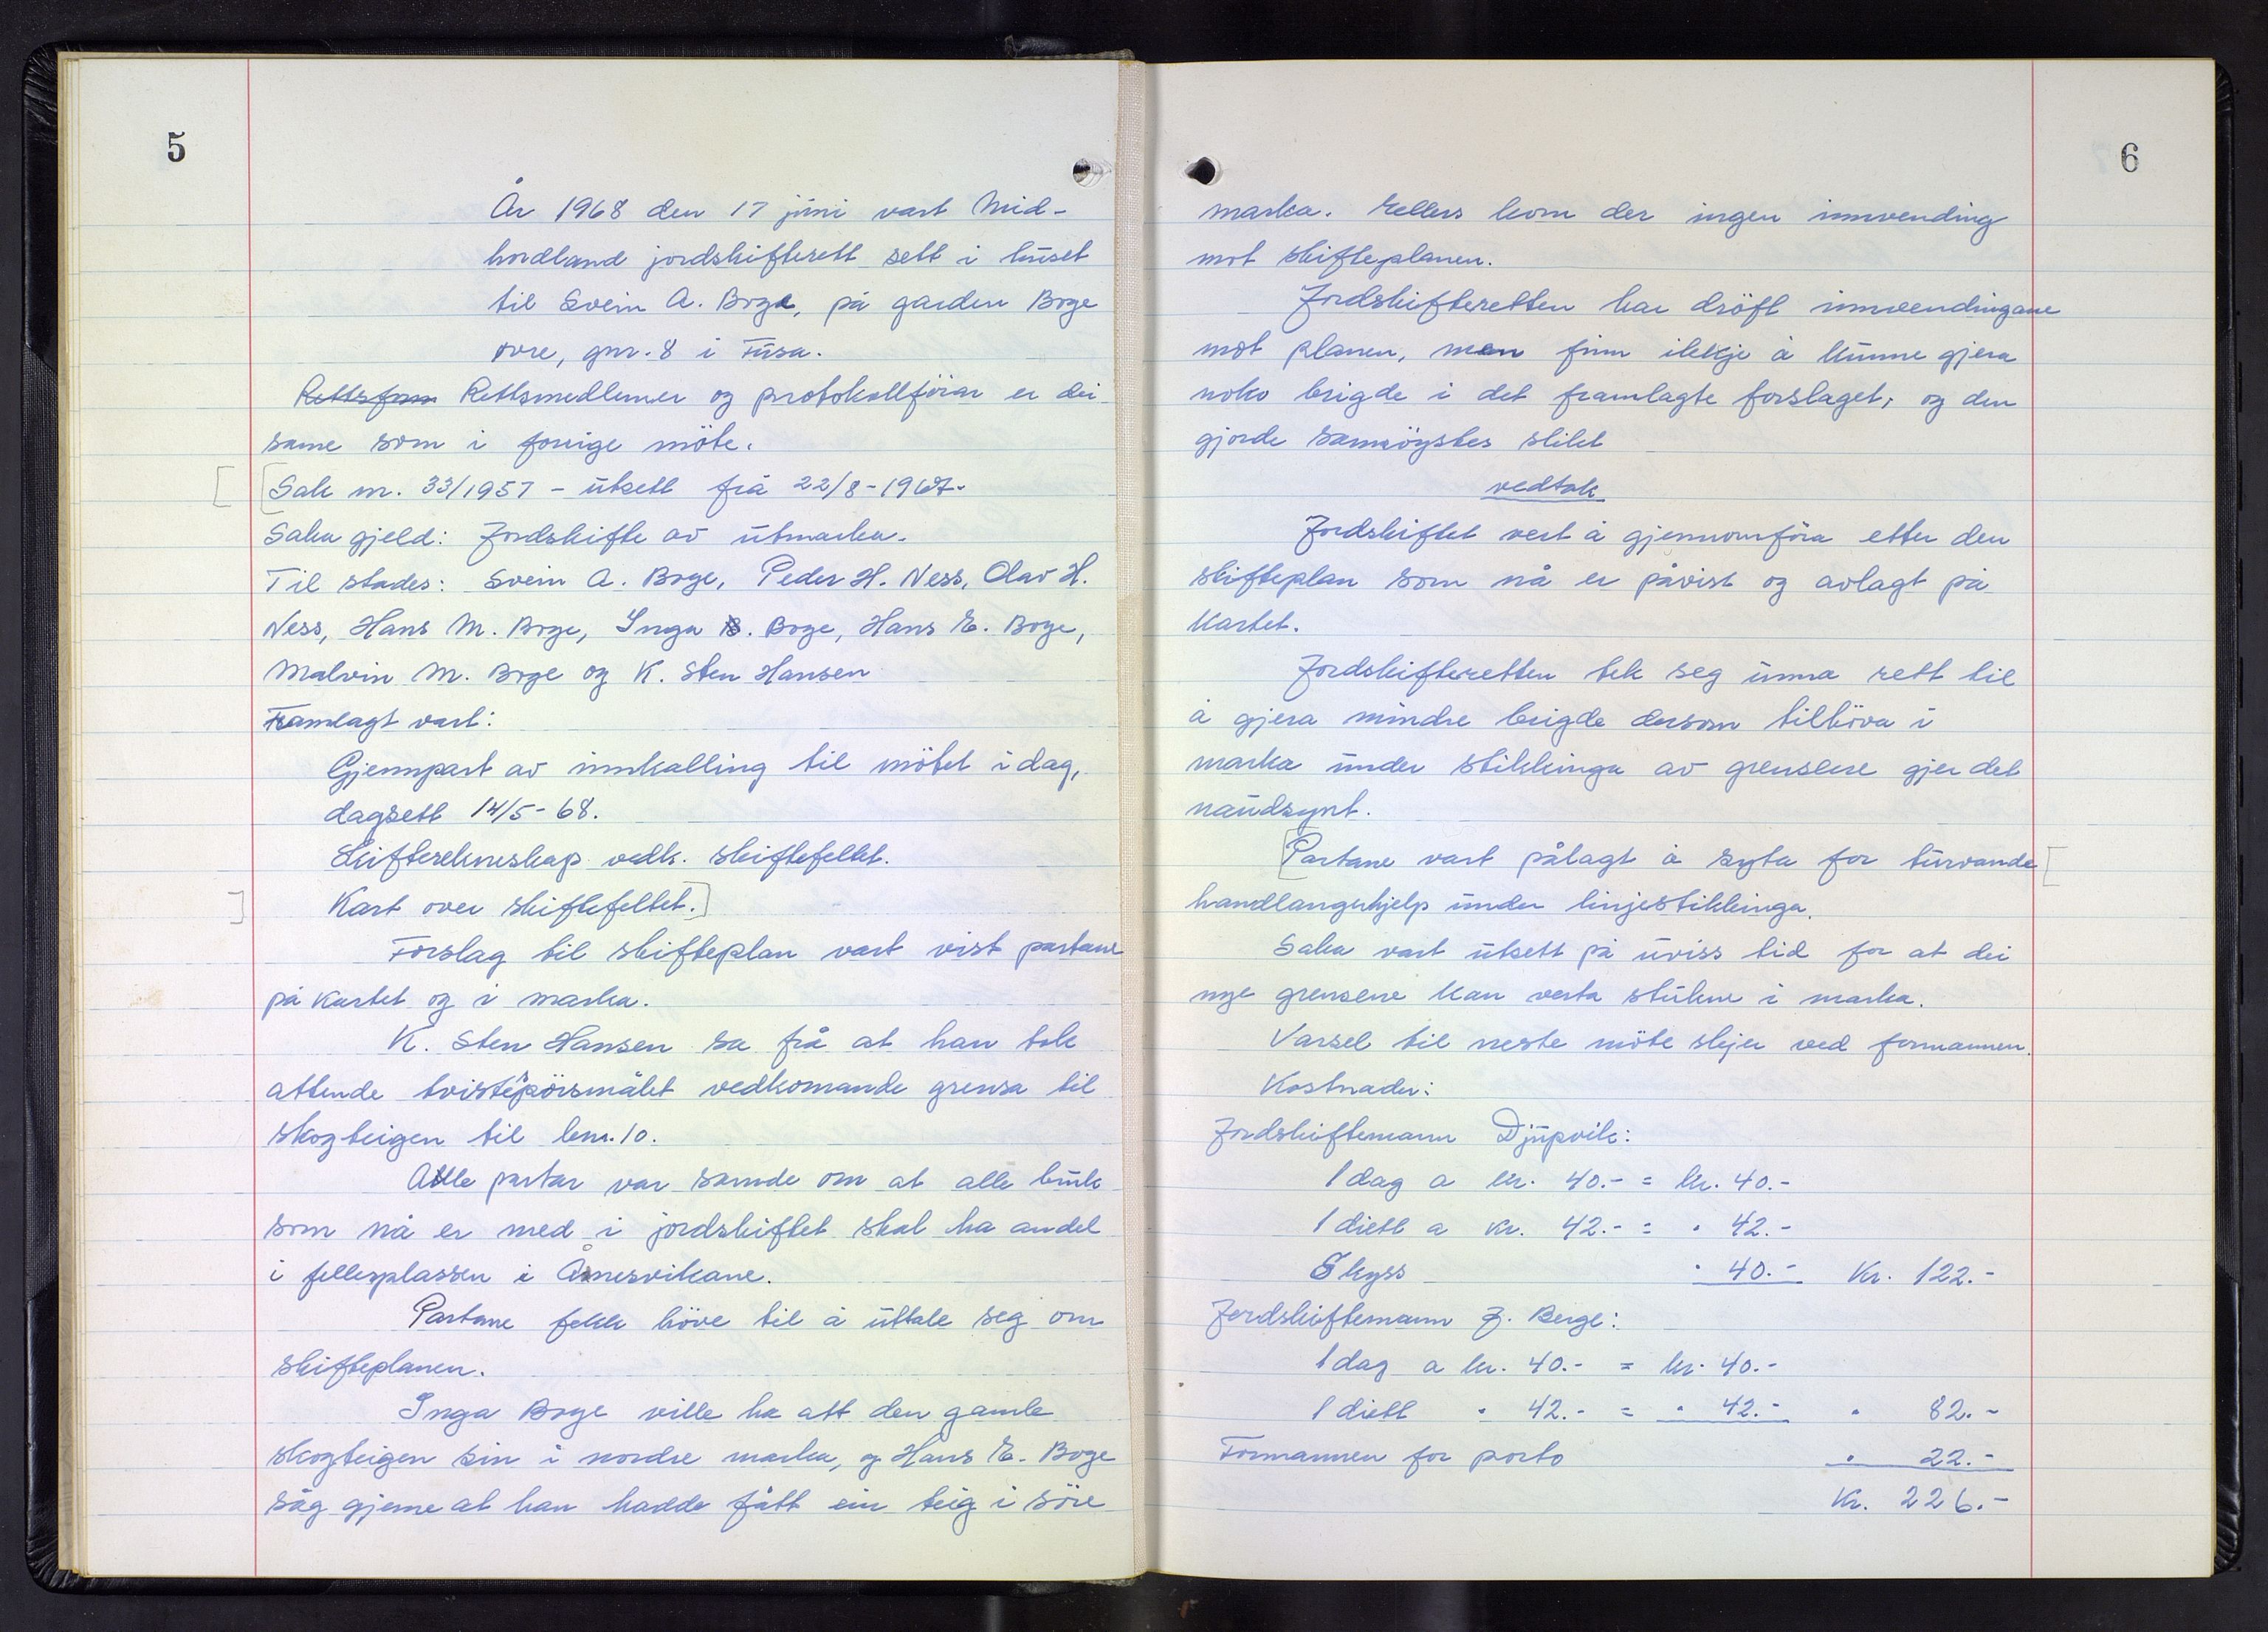 5
År 1968 den 17 juni vart Mid-
hordland jordskifterett sett i huset
til Svein A. Boge, på garden Boge
øvre, gnr. 8 i Fusa.
Rettsfom Rettsmedlemer og protokollförar er dei
same som i forrige möte.
[ [Sak nr. 33/1957 - utsett frå 22/8-1967.
Saka gjeld: Jordskifte av utmarka.
Til stades: Svein A. Boge, Peder H. Ness, Olav H.
Ness, Hans M. Boge, Inga B. Boge, Hans E. Boge,
Malvin M. Boge og K. Sten Hansen
Framlagt vart:
Gjennpart av innkalling til mötet i dag,
dagsett 14/5-68.
Skifterekneskap vedk. skiftefeltet.
] Kart over skiftefeltet.]
Forslag til skifteplan vart vist partane
på kartet og i marka.
K. Sten Hansen sa frå at han tok
attende tvistespörsmålet vedkomande grensa til
skogteigen til bnr. 10.
Alle partar var samde om at alle bruk
som nå er med i jordskiftet skal ha andel
i fellesplassen i Åmesvikane.
Partane fekk höve til å uttale seg om
skifteplanen.
Inga Boge ville ha att den gamle
skogteigen sin i nordre marka, og Hans E. Boge
såg gjerne at han hadde fått ein teig i söre
6
marka. Ellers kom der ingen innvending
mot skifteplanen.
Jordskifteretten har dröft innvendingane
mot planen, men finn ikkje å kunne gjera
noko brigde i det framlagte forslaget, og den
gjorde samröystes slikt
vedtak
Jordskiftet vert å gjennomföra etter den
skifteplan som nå er påvist og avlagt på
kartet.
Jordskifteretten tek seg unna rett til
å gjera mindre brigde dersom tilhöva i
marka under stikkinga av grensene gjer det
naudsynt.
[Partane vart pålagt å syta for turvande [
handlangerhjelp under linjestikkinga.
Saka vart utsett på uviss tid for at dei
nye grensene kan verta stukne i marka.
Varsel til neste möte skjer ved formannen.
Kostnader:
Jordskiftemann Djupvik:
1 dag a kr. 40.- = kr. 40.-
1 diett a kr. 42.- = " 42.-
Skyss " 40.- Kr. 122.-
Jordskiftemann J. Berge:
1 dag a kr. 40.- = kr. 40.-
1 diett " 42.- = " 42.- " 82.-
Formannen for porto " 22.-
Kr. 226.-